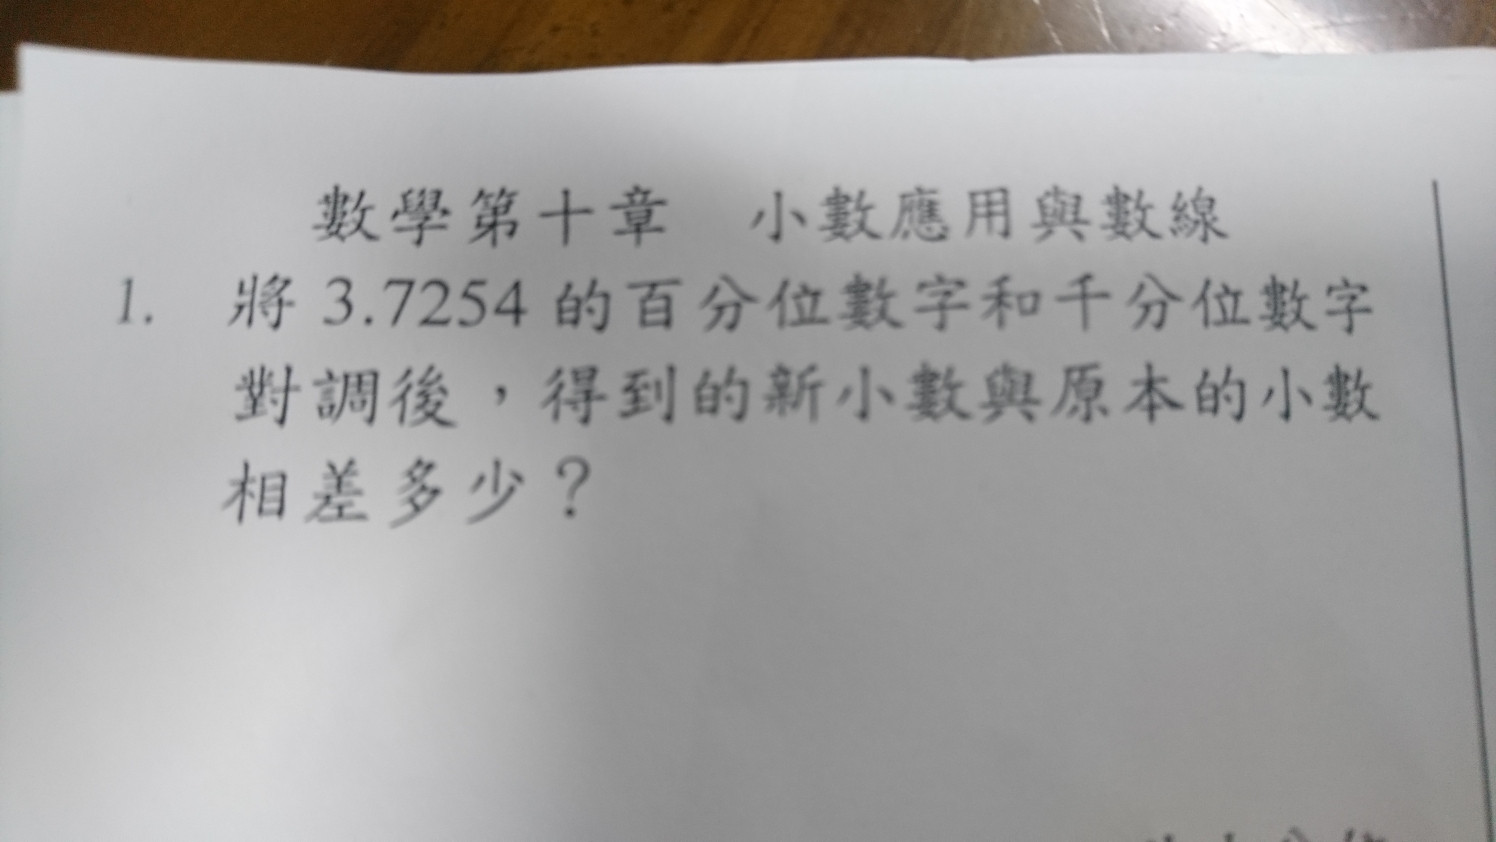 數學第十章　小數應用與數線
1. 將 3.7254 的百分位數字和千分位數字
對調後，得到的新小數與原本的小數
相差多少？